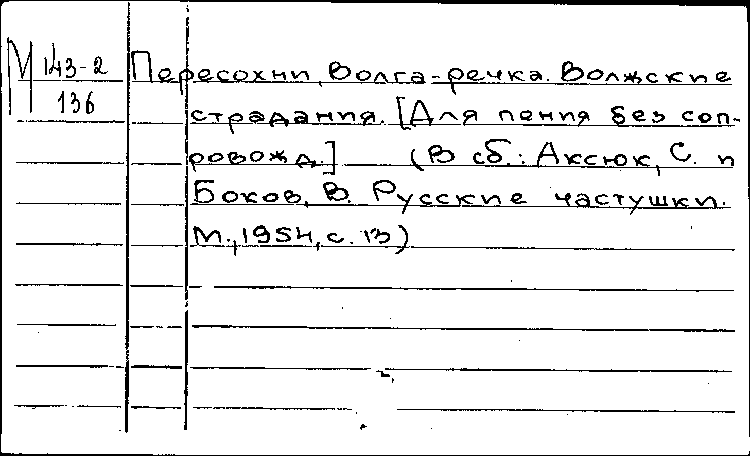 М 143-2
136
Пересохни, Волга-речка. Волжские
страдания. [Для пения без соп-
ровожд.] (В сб.: Аксюк, С. и
Боков, В. Русские частушки.
М., 1954, с. 13)